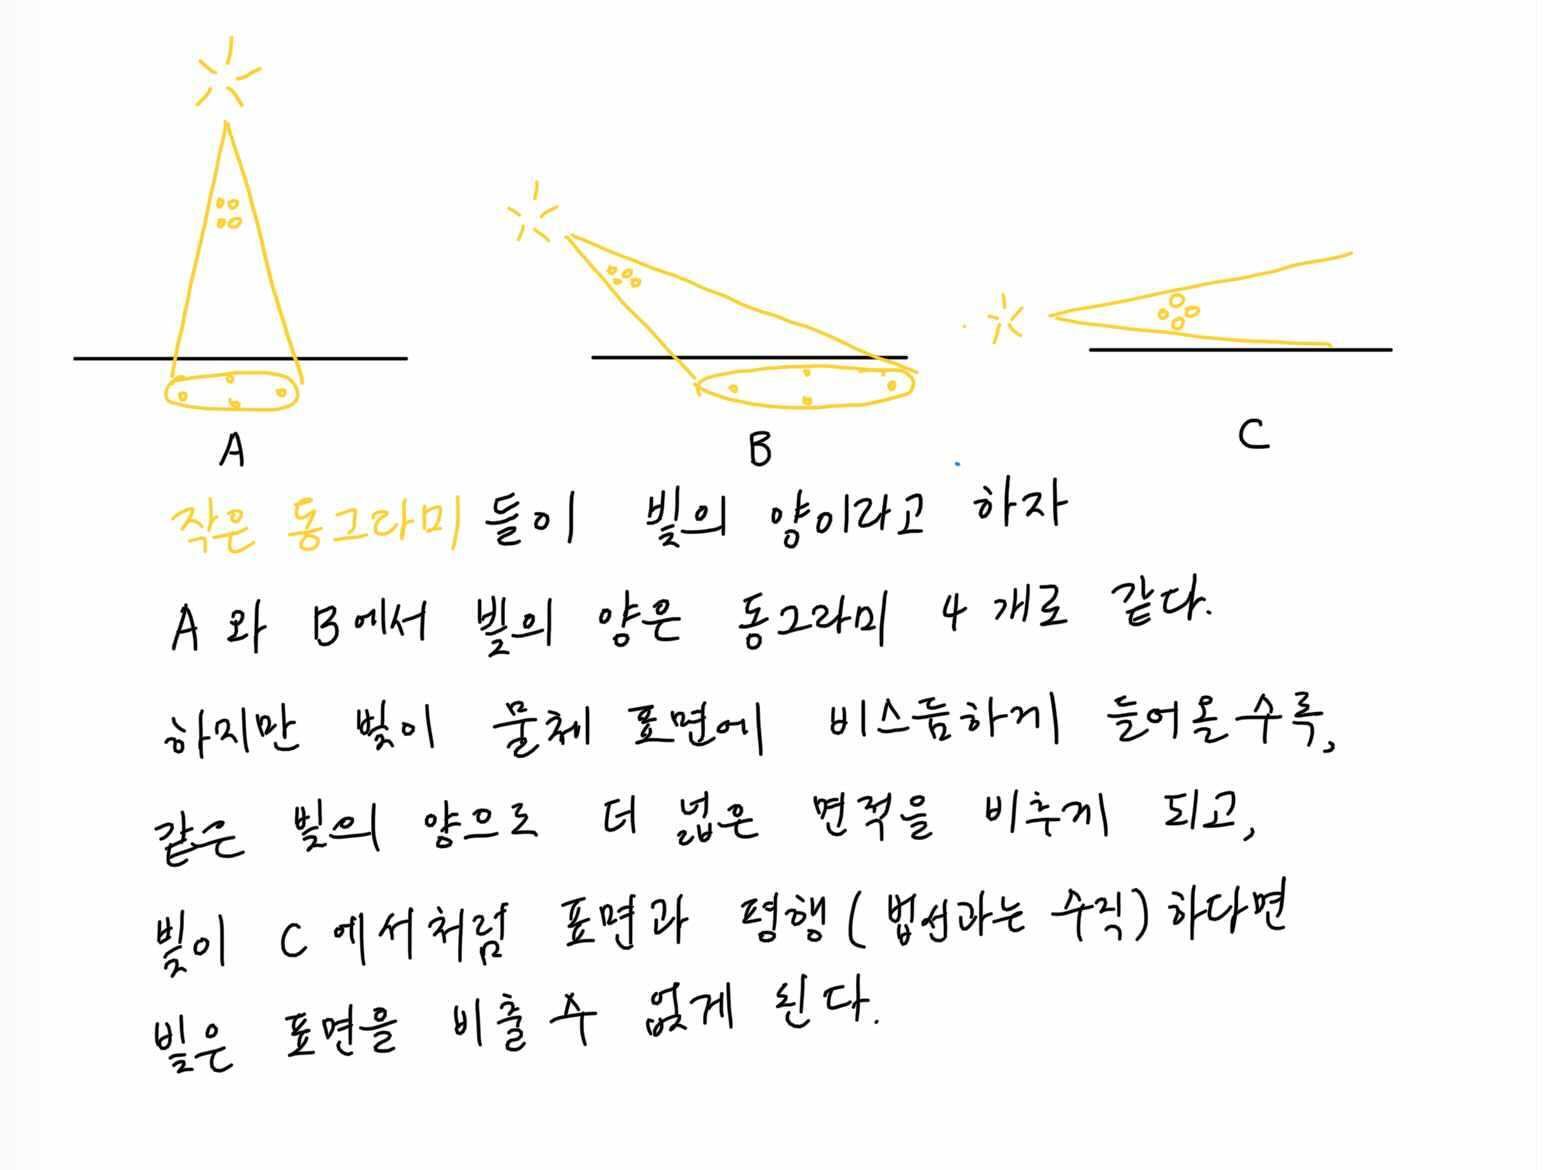 A
B
C
작은 동그라미들이 빛의 양이라고 하자
A와 B에서 빛의 양은 동그라미 4개로 같다.
하지만 빛이 물체 표면에 비스듬하게 들어올수록,
같은 빛의 양으로 더 넓은 면적을 비추게 되고,
빛이 C에서처럼 표면과 평행(법선과는 수직)하다면
빛은 표면을 비출 수 없게 된다.